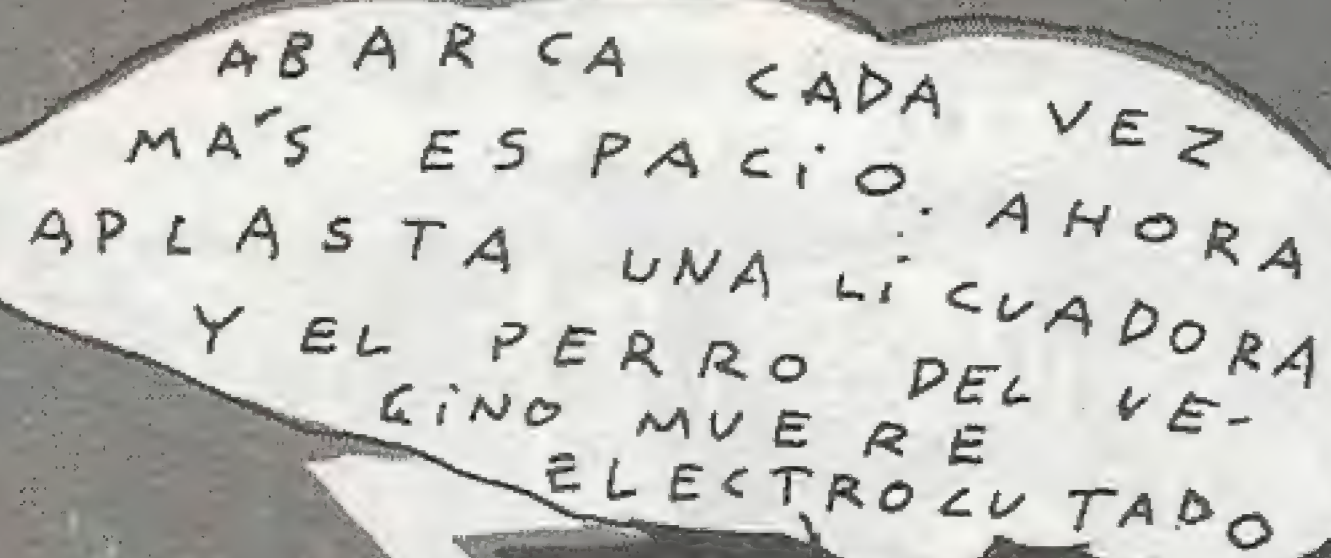 ABARCA CADA VEZ
MÁS ESPACIO. AHORA
APLASTA UNA LICUADORA
Y EL PERRO DEL VE-
CINO MUERE
ELECTROCUTADO